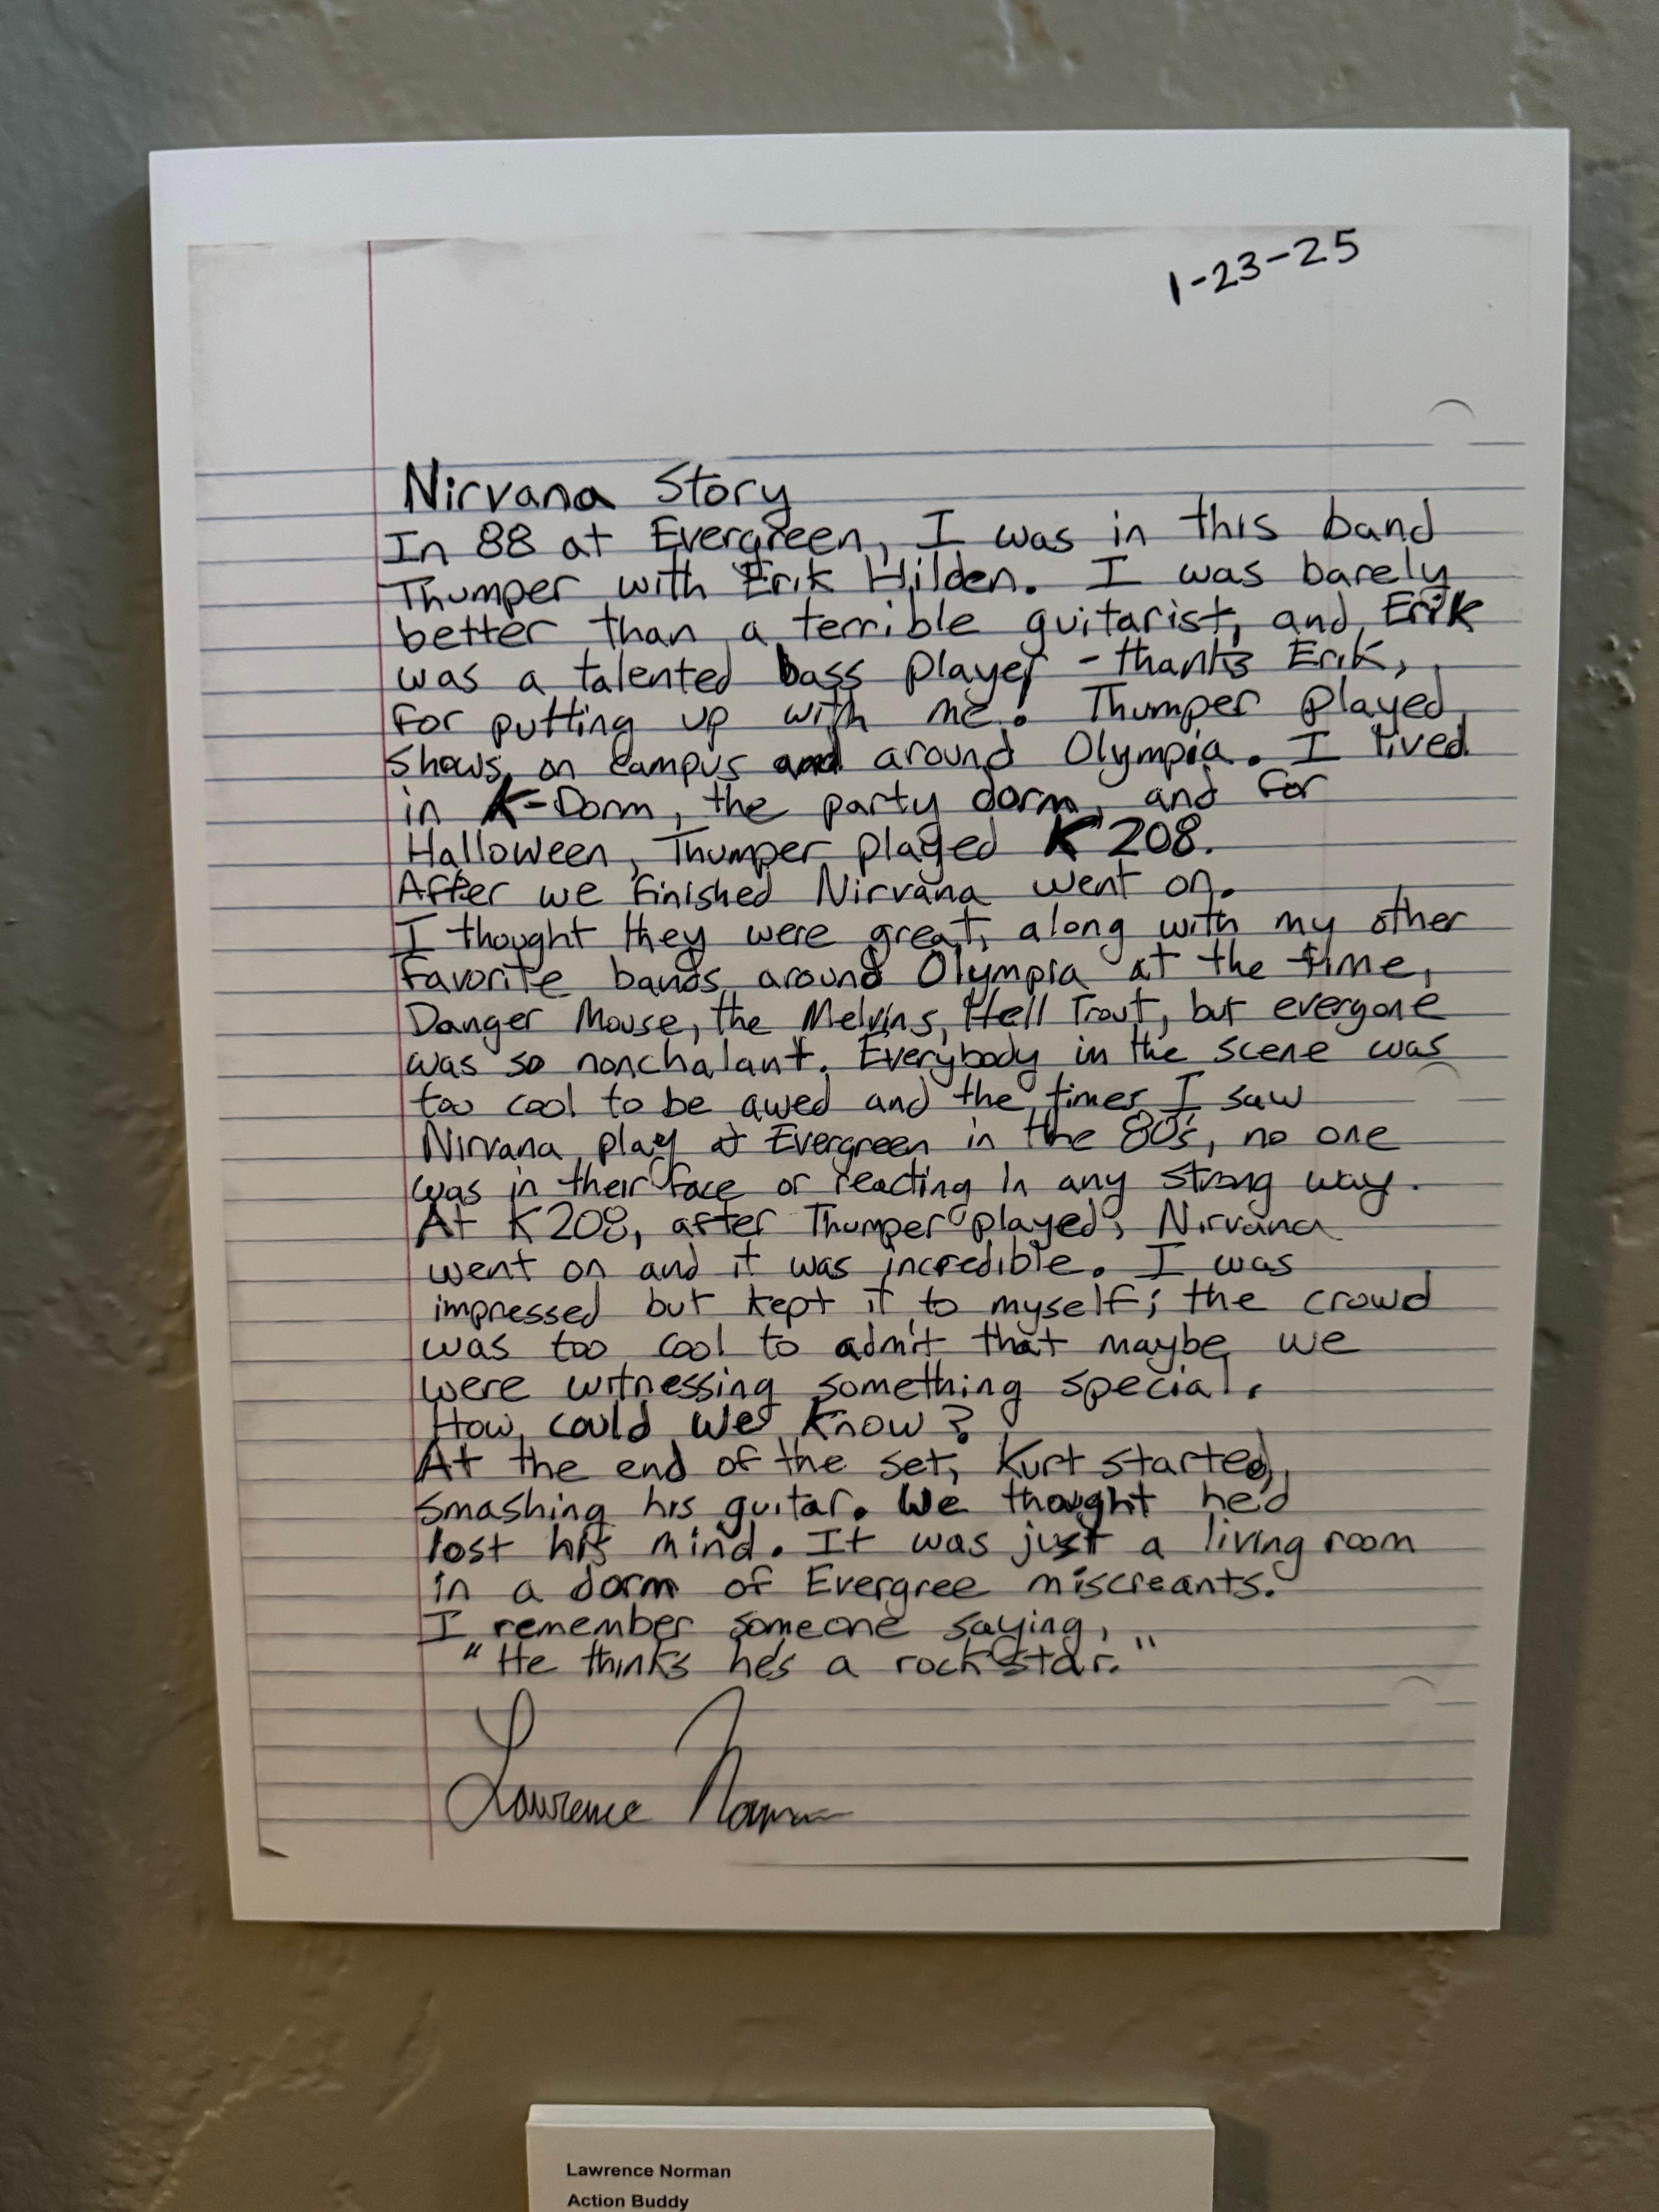 1-23-25
Nirvana Story
In 88 at Evergreen, I was in this band
Thumper with Erik Hilden. I was barely
better than a terrible guitarist, and Erik
was a talented bass player - thanks Erik,
for putting up with me! Thumper played
shows on campus and around Olympia. I lived
in K-Dorm, the party dorm, and for
Halloween, Thumper played K208.
After we finished Nirvana went on.
I thought they were great, along with my other
favorite bands around Olympia at the time,
Danger Mouse, the Melvins, Hell Trout, but everyone
was so nonchalant. Everybody in the scene was
too cool to be awed and the times I saw
Nirvana play at Evergreen in the 80's, no one
was in their face or reacting in any strong way.
At K208, after Thumper played, Nirvana
went on and it was incredible. I was
impressed but kept it to myself; the crowd
was too cool to admit that maybe we
were witnessing something special.
How could we know?
At the end of the set, Kurt started
smashing his guitar. We thought he'd
lost his mind. It was just a living room
in a dorm of Evergree miscreants.
I remember someone saying,
"He thinks he's a rock star."
Lawrence Norman
Lawrence Norman
Action Buddy